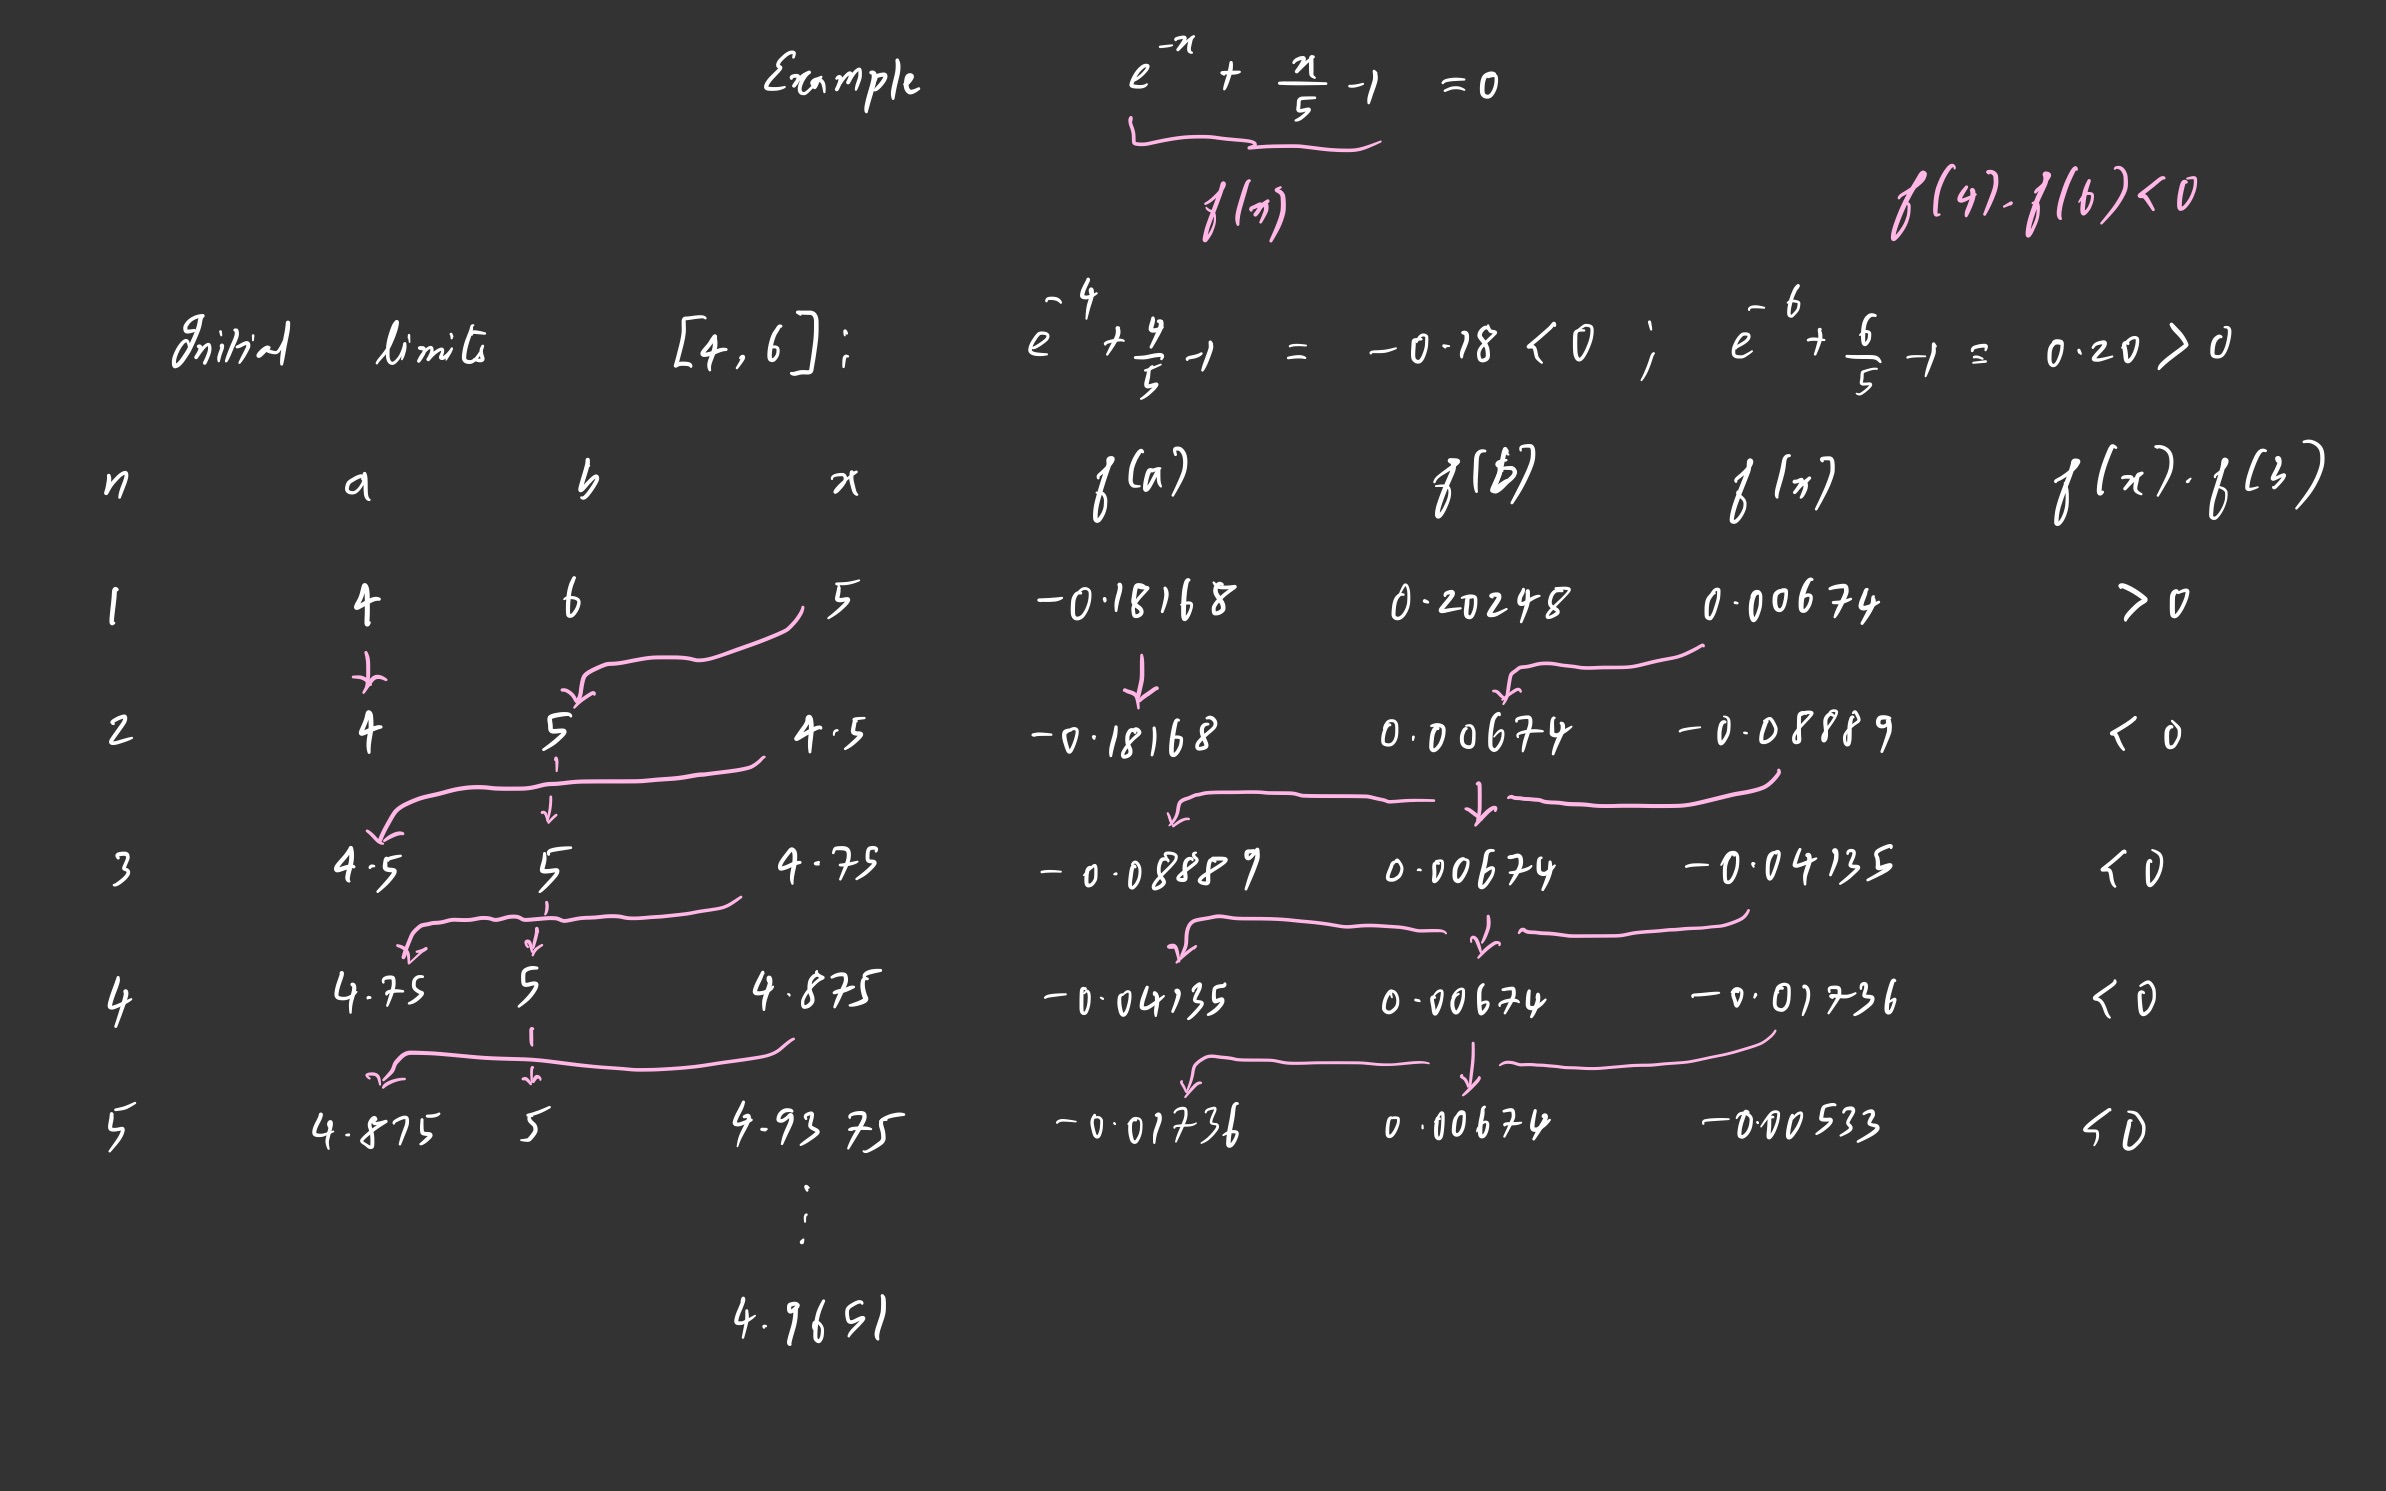 Example e^{-x} + x/5 - 1 = 0
f(x)
f(4). f(6) < 0
Initial limits [4, 6] : e^{-4} + 4/5 - 1 = - 0.18 < 0 ; e^{-6} + 6/5 - 1 = 0.20 > 0
n a b x f(a) f(b) f(x) f(x) . f(b)
1 4 6 5 -0.18168 0.20248 0.00674 > 0
2 4 5 4.5 -0.18168 0.00674 -0.08889 < 0
3 4.5 5 4.75 -0.08889 0.00674 -0.04135 < 0
4 4.75 5 4.875 -0.04135 0.00674 -0.01736 < 0
5 4.875 5 4.9375 -0.01736 0.00674 -0.00533 < 0
⋮
4.9651